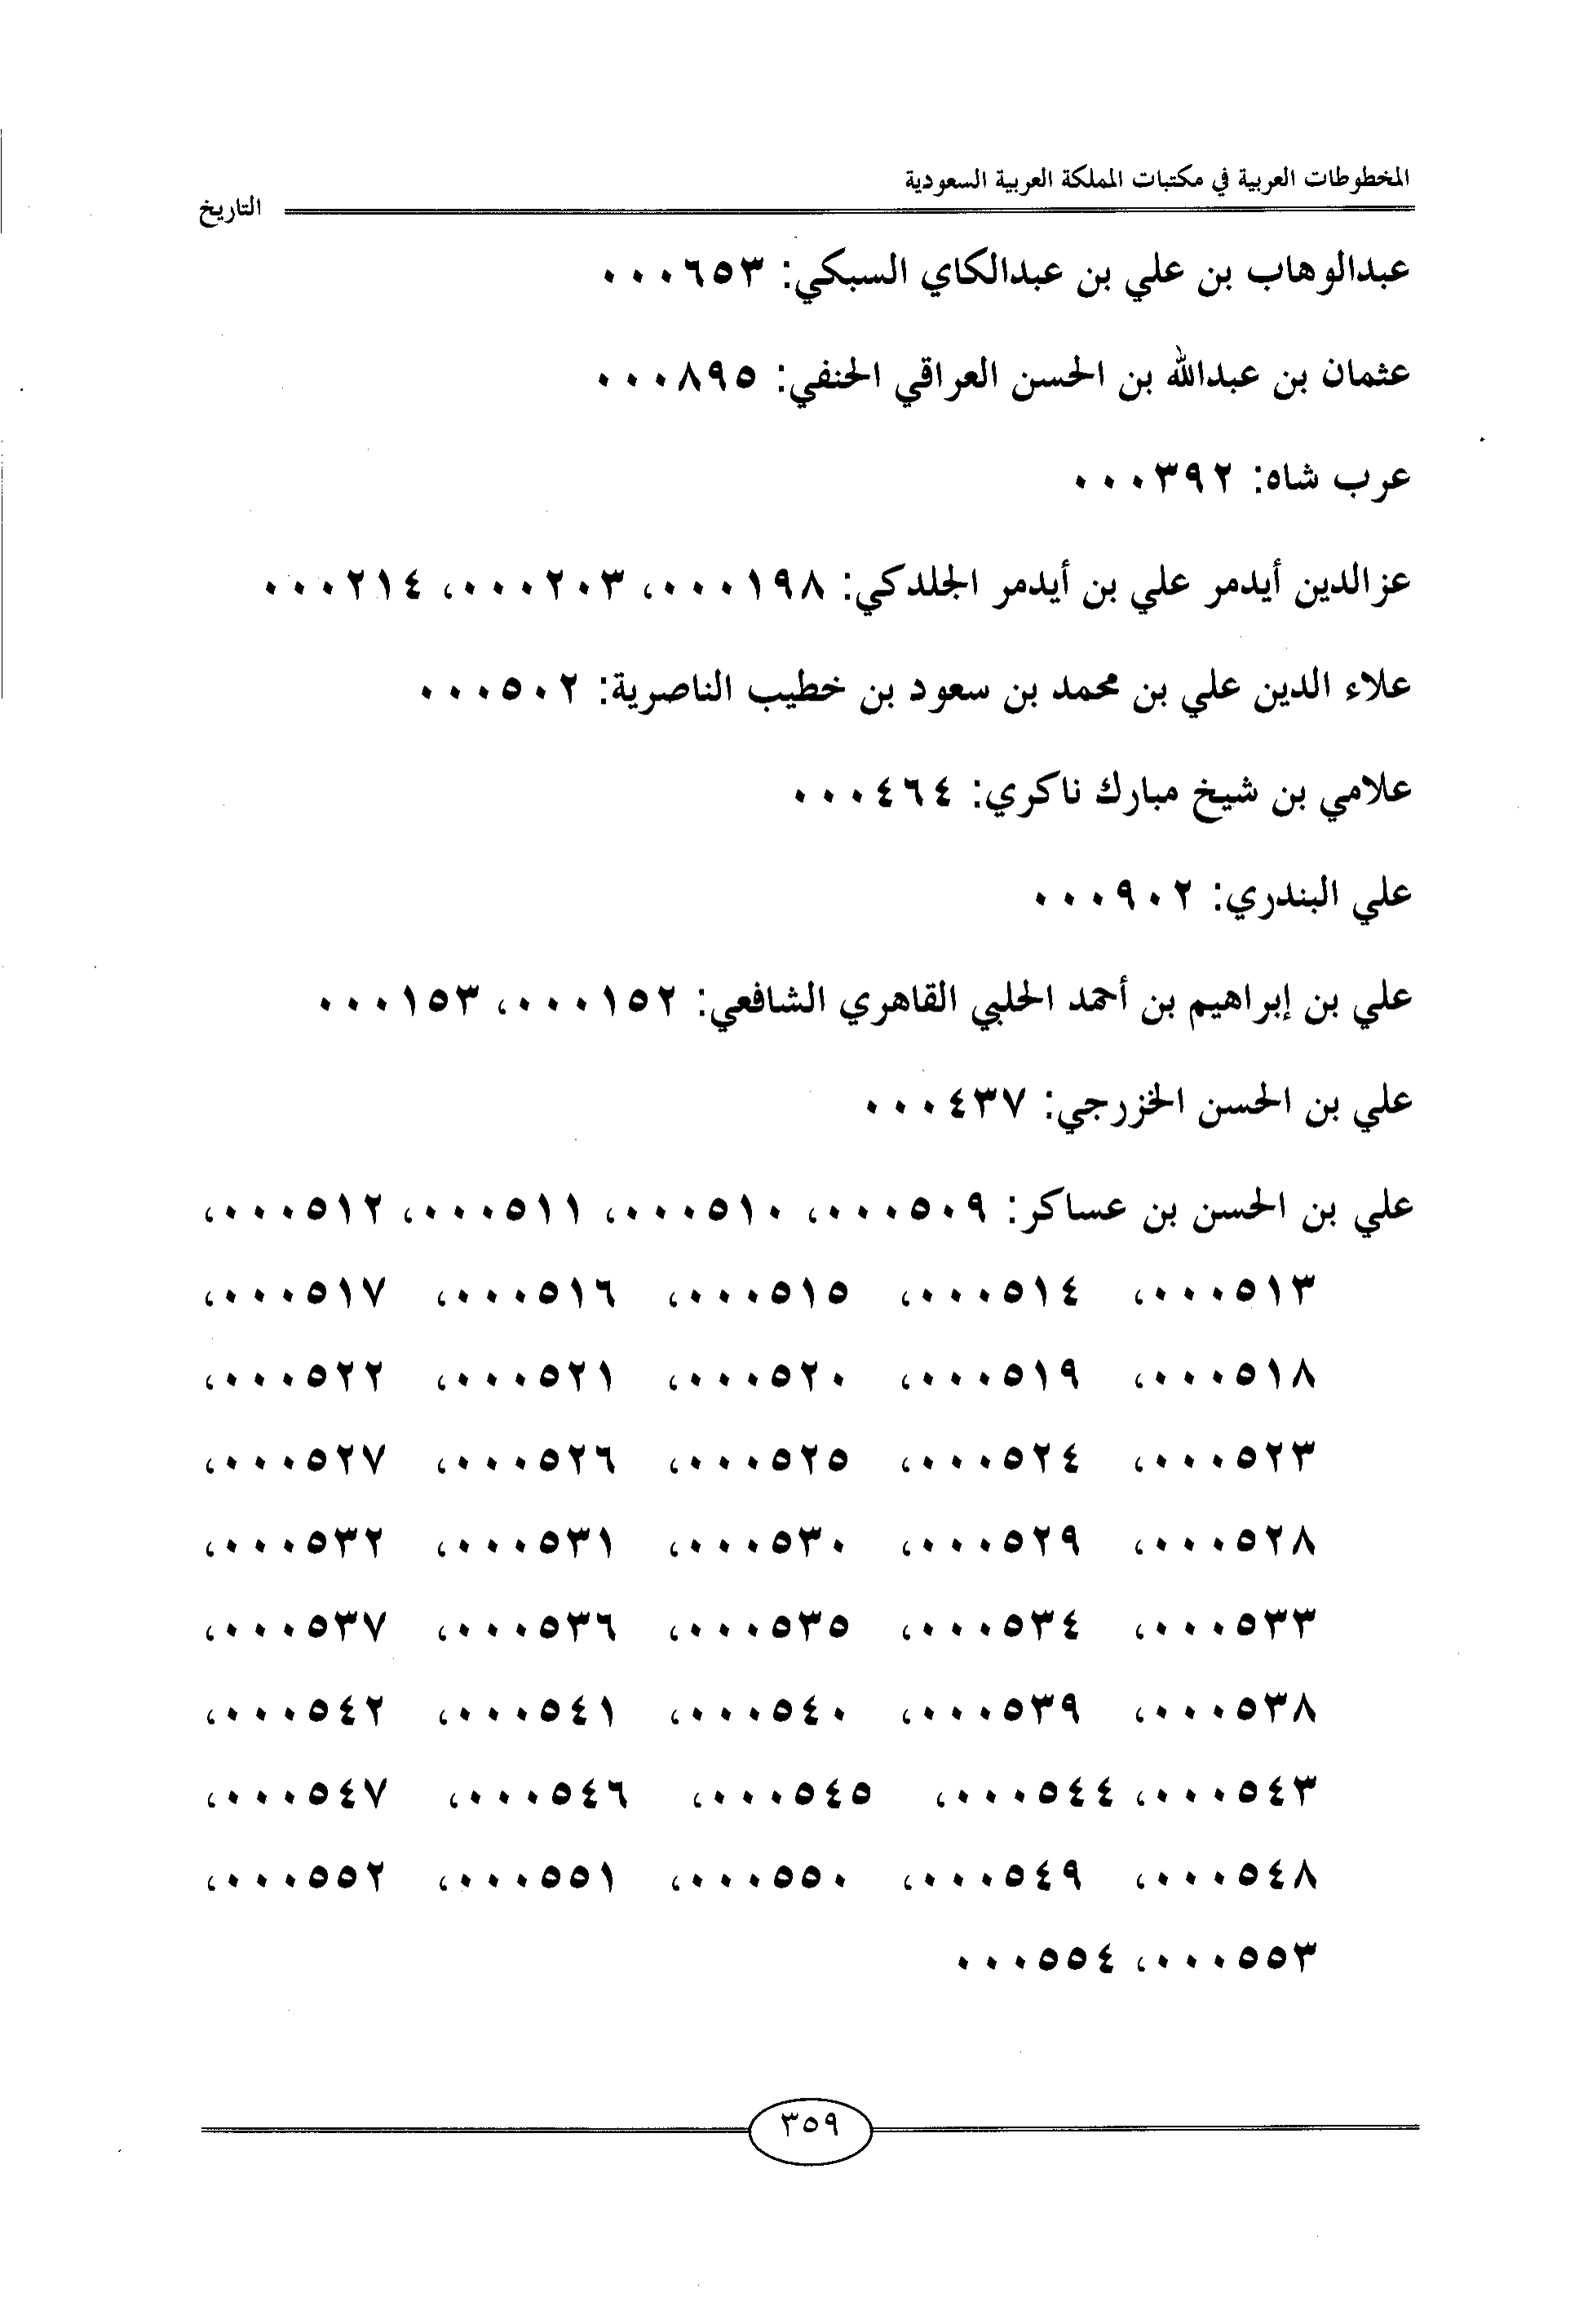 المخطوطات العربية في مكتبات المملكة العربية السعودية
التاريخ
عبدالوهاب بن علي بن عبدالكاي السبكي: ٠٠٠٦٥٣
عثمان بن عبدالله بن الحسن العراقي الحنفي: ٠٠٠٨٩٥
عرب شاه: ٠٠٠٣٩٢
عزالدين أيدمر علي بن أيدمر الجلدكي: ٠٠٠١٩٨، ٠٠٠٢٠٣، ٠٠٠٢١٤
علاء الدين علي بن محمد بن سعود بن خطيب الناصرية: ٠٠٠٥٠٢
علامي بن شيخ مبارك ناكري: ٠٠٠٤٦٤
علي البندري: ٠٠٠٩٠٢
علي بن إبراهيم بن أحمد الحلبي القاهري الشافعي: ٠٠٠١٥٢، ٠٠٠١٥٣
علي بن الحسن الخزرجي: ٠٠٠٤٣٧
علي بن الحسن بن عساكر: ٠٠٠٥٠٩، ٠٠٠٥١٠، ٠٠٠٥١١، ٠٠٠٥١٢،
٠٠٠٥١٣، ٠٠٠٥١٤، ٠٠٠٥١٥، ٠٠٠٥١٦، ٠٠٠٥١٧،
٠٠٠٥١٨، ٠٠٠٥١٩، ٠٠٠٥٢٠، ٠٠٠٥٢١، ٠٠٠٥٢٢،
٠٠٠٥٢٣، ٠٠٠٥٢٤، ٠٠٠٥٢٥، ٠٠٠٥٢٦، ٠٠٠٥٢٧،
٠٠٠٥٢٨، ٠٠٠٥٢٩، ٠٠٠٥٣٠، ٠٠٠٥٣١، ٠٠٠٥٣٢،
٠٠٠٥٣٣، ٠٠٠٥٣٤، ٠٠٠٥٣٥، ٠٠٠٥٣٦، ٠٠٠٥٣٧،
٠٠٠٥٣٨، ٠٠٠٥٣٩، ٠٠٠٥٤٠، ٠٠٠٥٤١، ٠٠٠٥٤٢،
٠٠٠٥٤٣، ٠٠٠٥٤٤، ٠٠٠٥٤٥، ٠٠٠٥٤٦، ٠٠٠٥٤٧،
٠٠٠٥٤٨، ٠٠٠٥٤٩، ٠٠٠٥٥٠، ٠٠٠٥٥١، ٠٠٠٥٥٢،
٠٠٠٥٥٣، ٠٠٠٥٥٤
٣٥٩